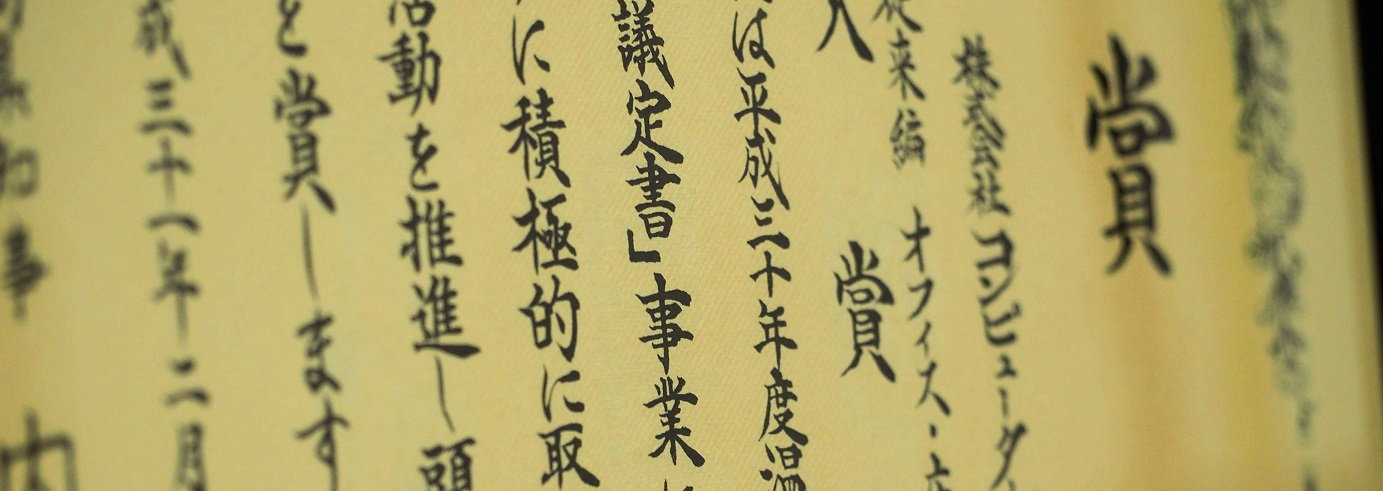 賞
株式会社コンピュータ
従来編 オフィス・
入 賞
は平成三十年度温
議定書」事業
に積極的に取
活動を推進し頭
を賞します
成三十一年二月
知事 内